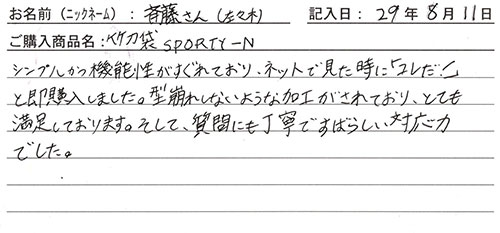 お名前(ニックネーム): 斉藤さん(佐々木) 記入日: 29年8月11日
ご購入商品名: 竹刀袋SPORTY-N
シンプルかつ機能性がすぐれており、ネットで見た時に「コレだ!」
と即購入しました。型崩れしないような加工がされており、とても
満足しております。そして、質問にも丁寧ですばらしい対応力
でした。